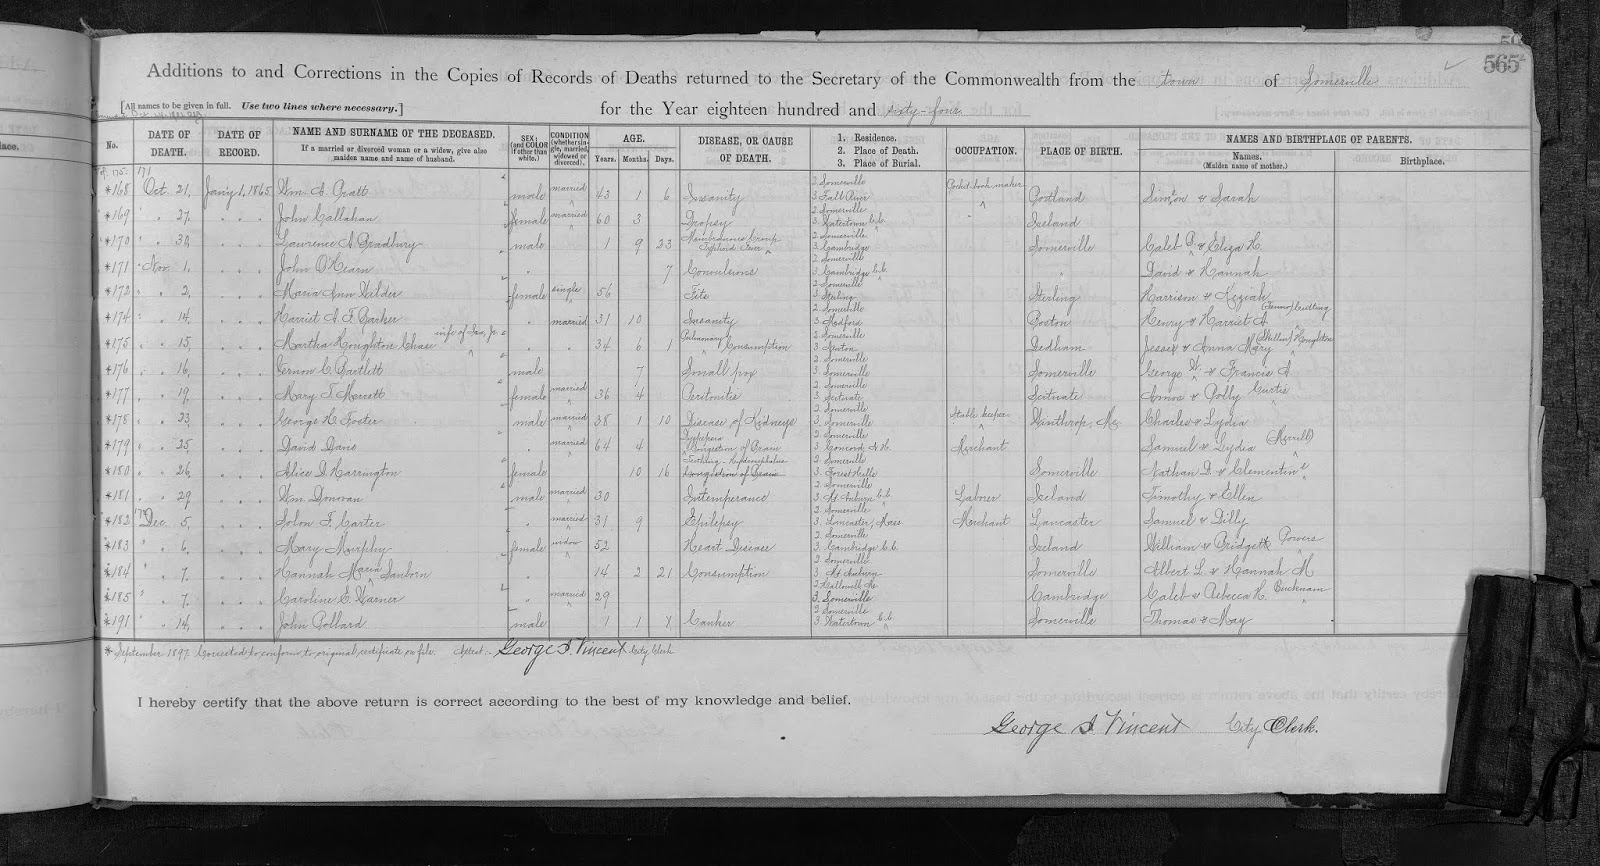 565
Additions to and Corrections in the Copies of Records of Deaths returned to the Secretary of the Commonwealth from the town of Somerville
[All names to be given in full. Use two lines where necessary.] for the Year eighteen hundred and sixty-four.
No. DATE OF DEATH. DATE OF RECORD. NAME AND SURNAME OF THE DECEASED. If a married or divorced woman or a widow, give also maiden name and name of husband. SEX; (and COLOR if other than white.) CONDITION (whether single, married, widowed or divorced). AGE. Years. Months. Days. DISEASE, OR CAUSE OF DEATH. 1. Residence. 2. Place of Death. 3. Place of Burial. OCCUPATION. PLACE OF BIRTH. NAMES AND BIRTHPLACE OF PARENTS. Names. (Maiden name of mother.) Birthplace.
*168 Oct. 21, Jany 1, 1865 Wm. A. Pratt male married 43 1 6 Insanity 2 Somerville 3 Fall River Pocket-book maker Portland Simeon & Sarah
*169 " 27, John Callahan female married 60 3 Dropsy 2 Somerville 3 Watertown C.C. " Ireland
*170 " 30, Lawrence A. Bradbury male 1 9 23 Membraneous Croup Typhoid Fever 2 Somerville 3 Cambridge Somerville Caleb & Eliza H.
*171 Nov. 1, John O'Hearn " 7 Convulsions 2 Somerville 3 Cambridge C.C. " David & Hannah
*172 " 2, Maria Ann Wilder female single 56 Fits 2 Somerville 3 Sterling Sterling Harrison & Keziah
*174 " 14, Harriet A. F. Barker " married 31 10 Insanity 2 Somerville 3 Medford Boston Henry & Harriet A.
*175 " 15, Martha Houghton Chase wife of Jas. Jr. " " 34 6 1 Pulmonary Consumption 2 Somerville 3 Newton Dedham Jesse & Anna Mary Houghton
*176 " 16, Vernon C. Bartlett male 7 Small pox 2 Somerville 3 Somerville Somerville George W. & Francis A
*177 " 19, Mary T. Merritt female married 36 4 Peritonitis 2 Somerville 3 Scituate Scituate Amos & Polly Curtis
*178 " 23, George H. Foster male married 38 1 10 Disease of Kidneys 2 Somerville 3 Somerville Stable keeper Winthrop, Me. Charles & Lydia
*179 " 25, David Davis " married 64 4 Dyspepsia Congestion of Brain 2 Somerville 3 Concord N.H. Merchant Samuel & Lydia (Merrill)
*180 " 26, Alice D. Harrington female 10 16 Teething. Hydrocephalus Congestion of Brain 2 Somerville 3 Forest Hills Somerville Nathan D. & Clementine
*181 " 29 Wm. Donovan male married 30 Intemperance 2 Somerville 3 Mt Auburn C.C. Laborer Ireland Timothy & Ellen
*182 Dec. 5, Solon F. Carter " married 31 9 Epilepsy 2 Somerville 3 Lancaster, Mass Merchant Lancaster Samuel & Dilly
*183 " 6, Mary Murphy female widow 52 Heart Disease 2 Somerville 3 Cambridge C.C. Ireland William & Bridgett Powers
*184 " 7, Hannah Maria Sanborn " 14 2 21 Consumption 2 Somerville 3 Mt Auburn Somerville Albert L. & Hannah M
*185 " 7, Caroline E. Warner " married 29 2 Hallowell Me 3 Somerville Cambridge Caleb & Rebecca H. Bucknam
*191 " 14, John Pollard male 1 1 Canker 2 Somerville 3 Watertown C.C. Somerville Thomas & May
* September 1897. Corrected to conform to original certificate on file. Attest:- George I. Vincent City Clerk
I hereby certify that the above return is correct according to the best of my knowledge and belief.
George I. Vincent City Clerk.